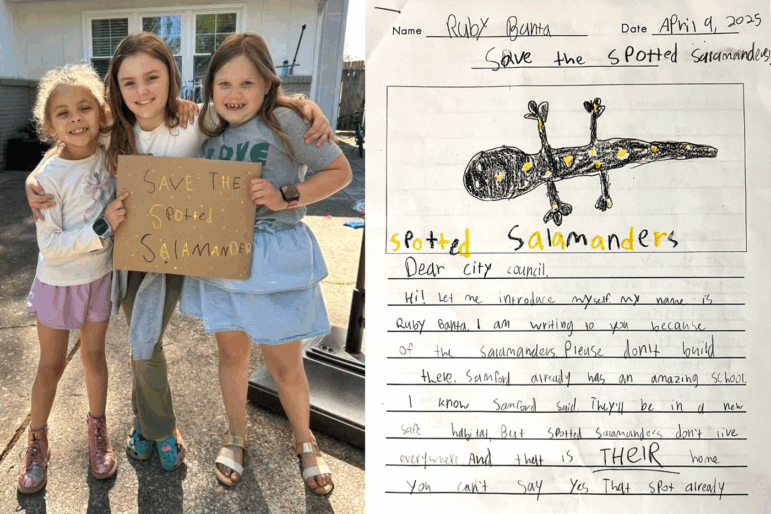 SAVE THE
Spotted
SALAMANDER
Name Ruby Banta Date April 9, 2025
Save the spotted salamanders!
spotted Salamanders
Dear city council,
Hi! Let me introduce myself my name is
Ruby Banta. I am writing to you because
of the salamanders. Please don't build
there. Samford already has an amazing school.
I know Samford said. They'll be in a new
safe habitat. But spotted salamanders don't live
everywhere. And that is THEIR home
You can't say yes. That spot already